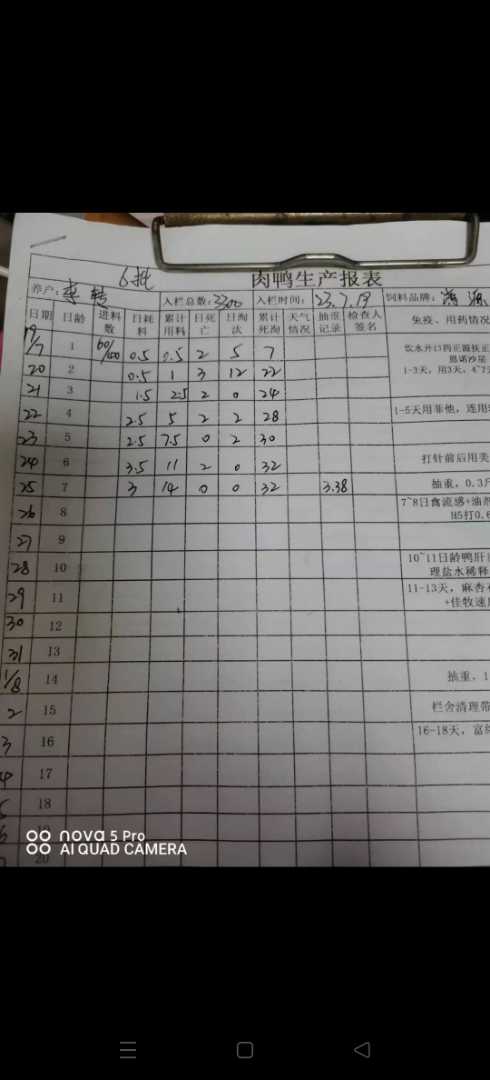 6批 肉鸭生产报表
养户: 李 入栏总数:3300 入栏时间: 23.7.19 饲料品牌:
日期 日龄 进料数 日耗料 累计用料 日死亡 日淘汰 累计死淘 天气情况 抽重记录 检查人签名 免疫、用药情况
19/7 1 60/100 0.5 0.5 2 5 7
恩诺沙星
20 2 0.5 1 3 12 22 1-3天，用3天，4~7
21 3 1.5 2.5 2 0 24
22 4 2.5 5 2 2 28 1-5天用菲他，连用
23 5 2.5 7.5 0 2 30
24 6 3.5 11 2 0 32 打针前后用美
25 7 3 14 0 0 32 3.38 抽重，0.3斤
26 8 7~8日禽流感+油剂
H5打0.6
27 9
28 10 10~11日龄鸭肝
理盐水稀释
29 11 11-13天，麻杏石
+佳牧速
30 12
31 13
1/8 14 抽重，1
2 15 栏舍清理带
3 16 16-18天，富
4 17
5 18
6 19
20
nova 5 Pro
AI QUAD CAMERA